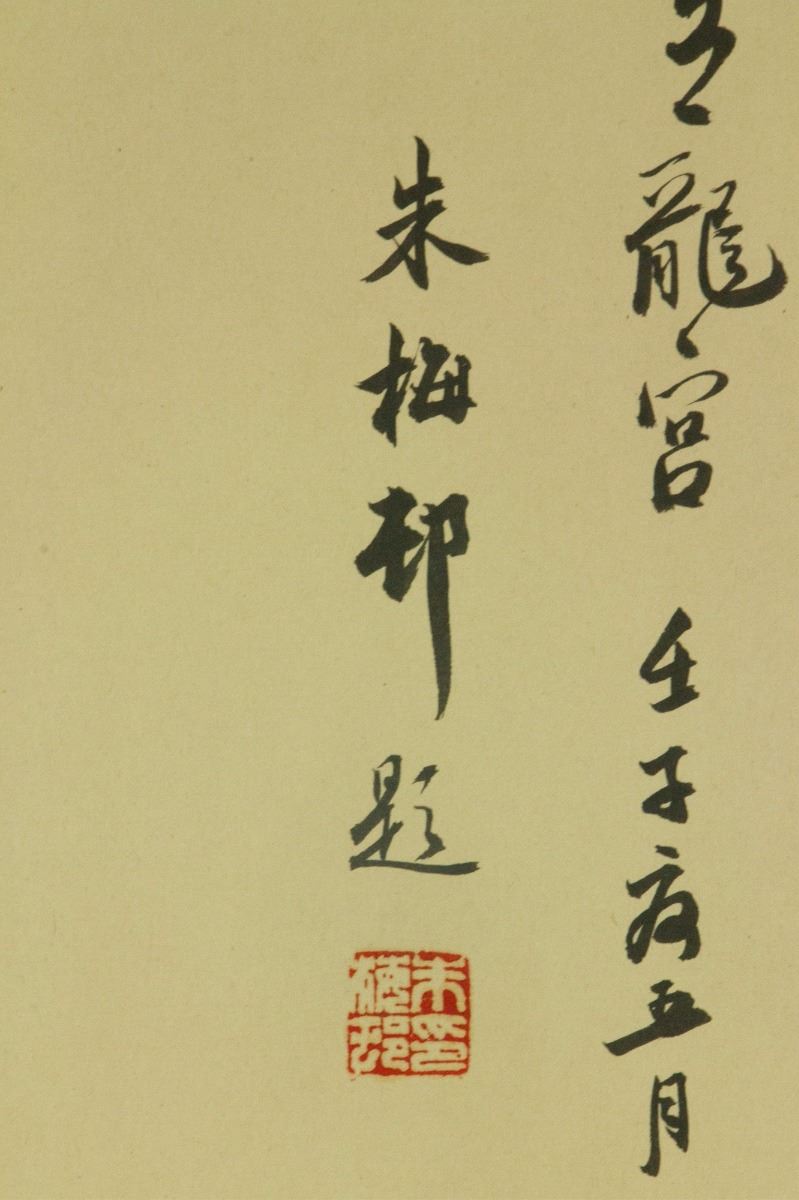 龍宮 壬子夏五月
朱梅邨題
朱印
梅邨